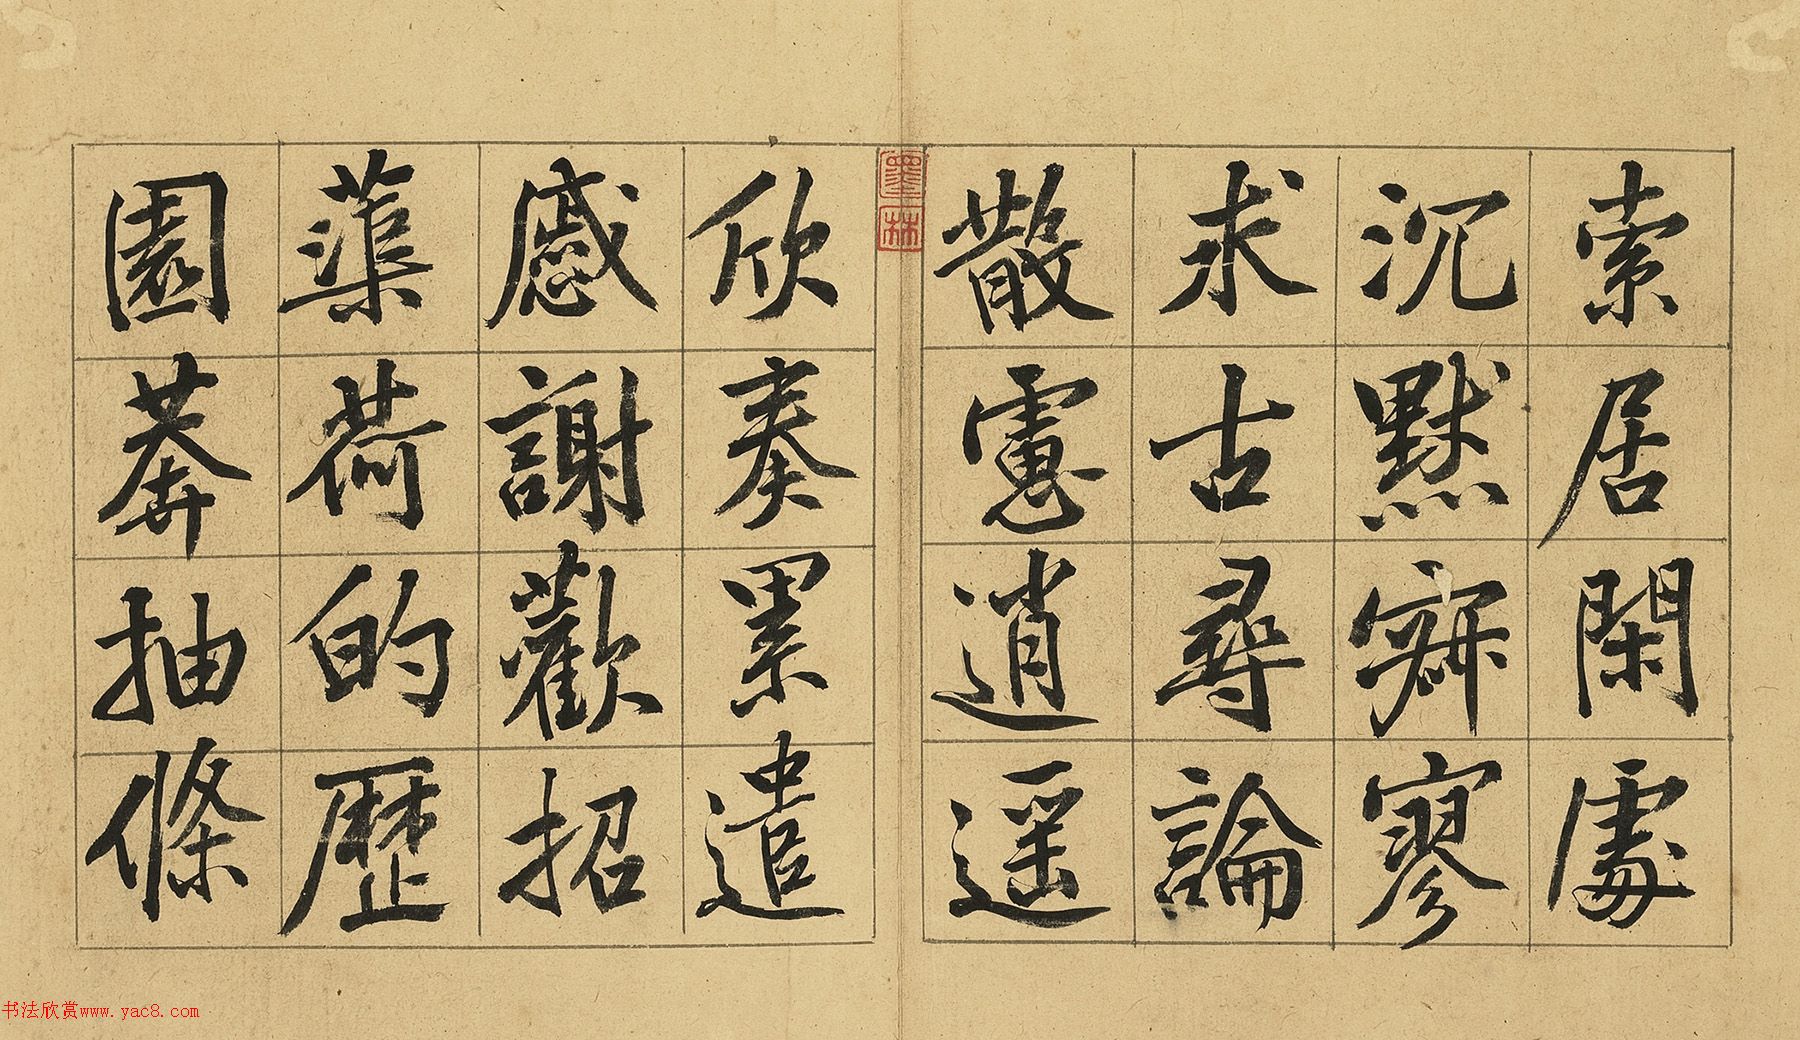 索居閑處
沉默寂寥
求古尋論
散慮逍遥
欣奏累遣
慼謝歡招
蕖荷的歷
園莽抽條
墨林
书法欣赏www.yac8.com